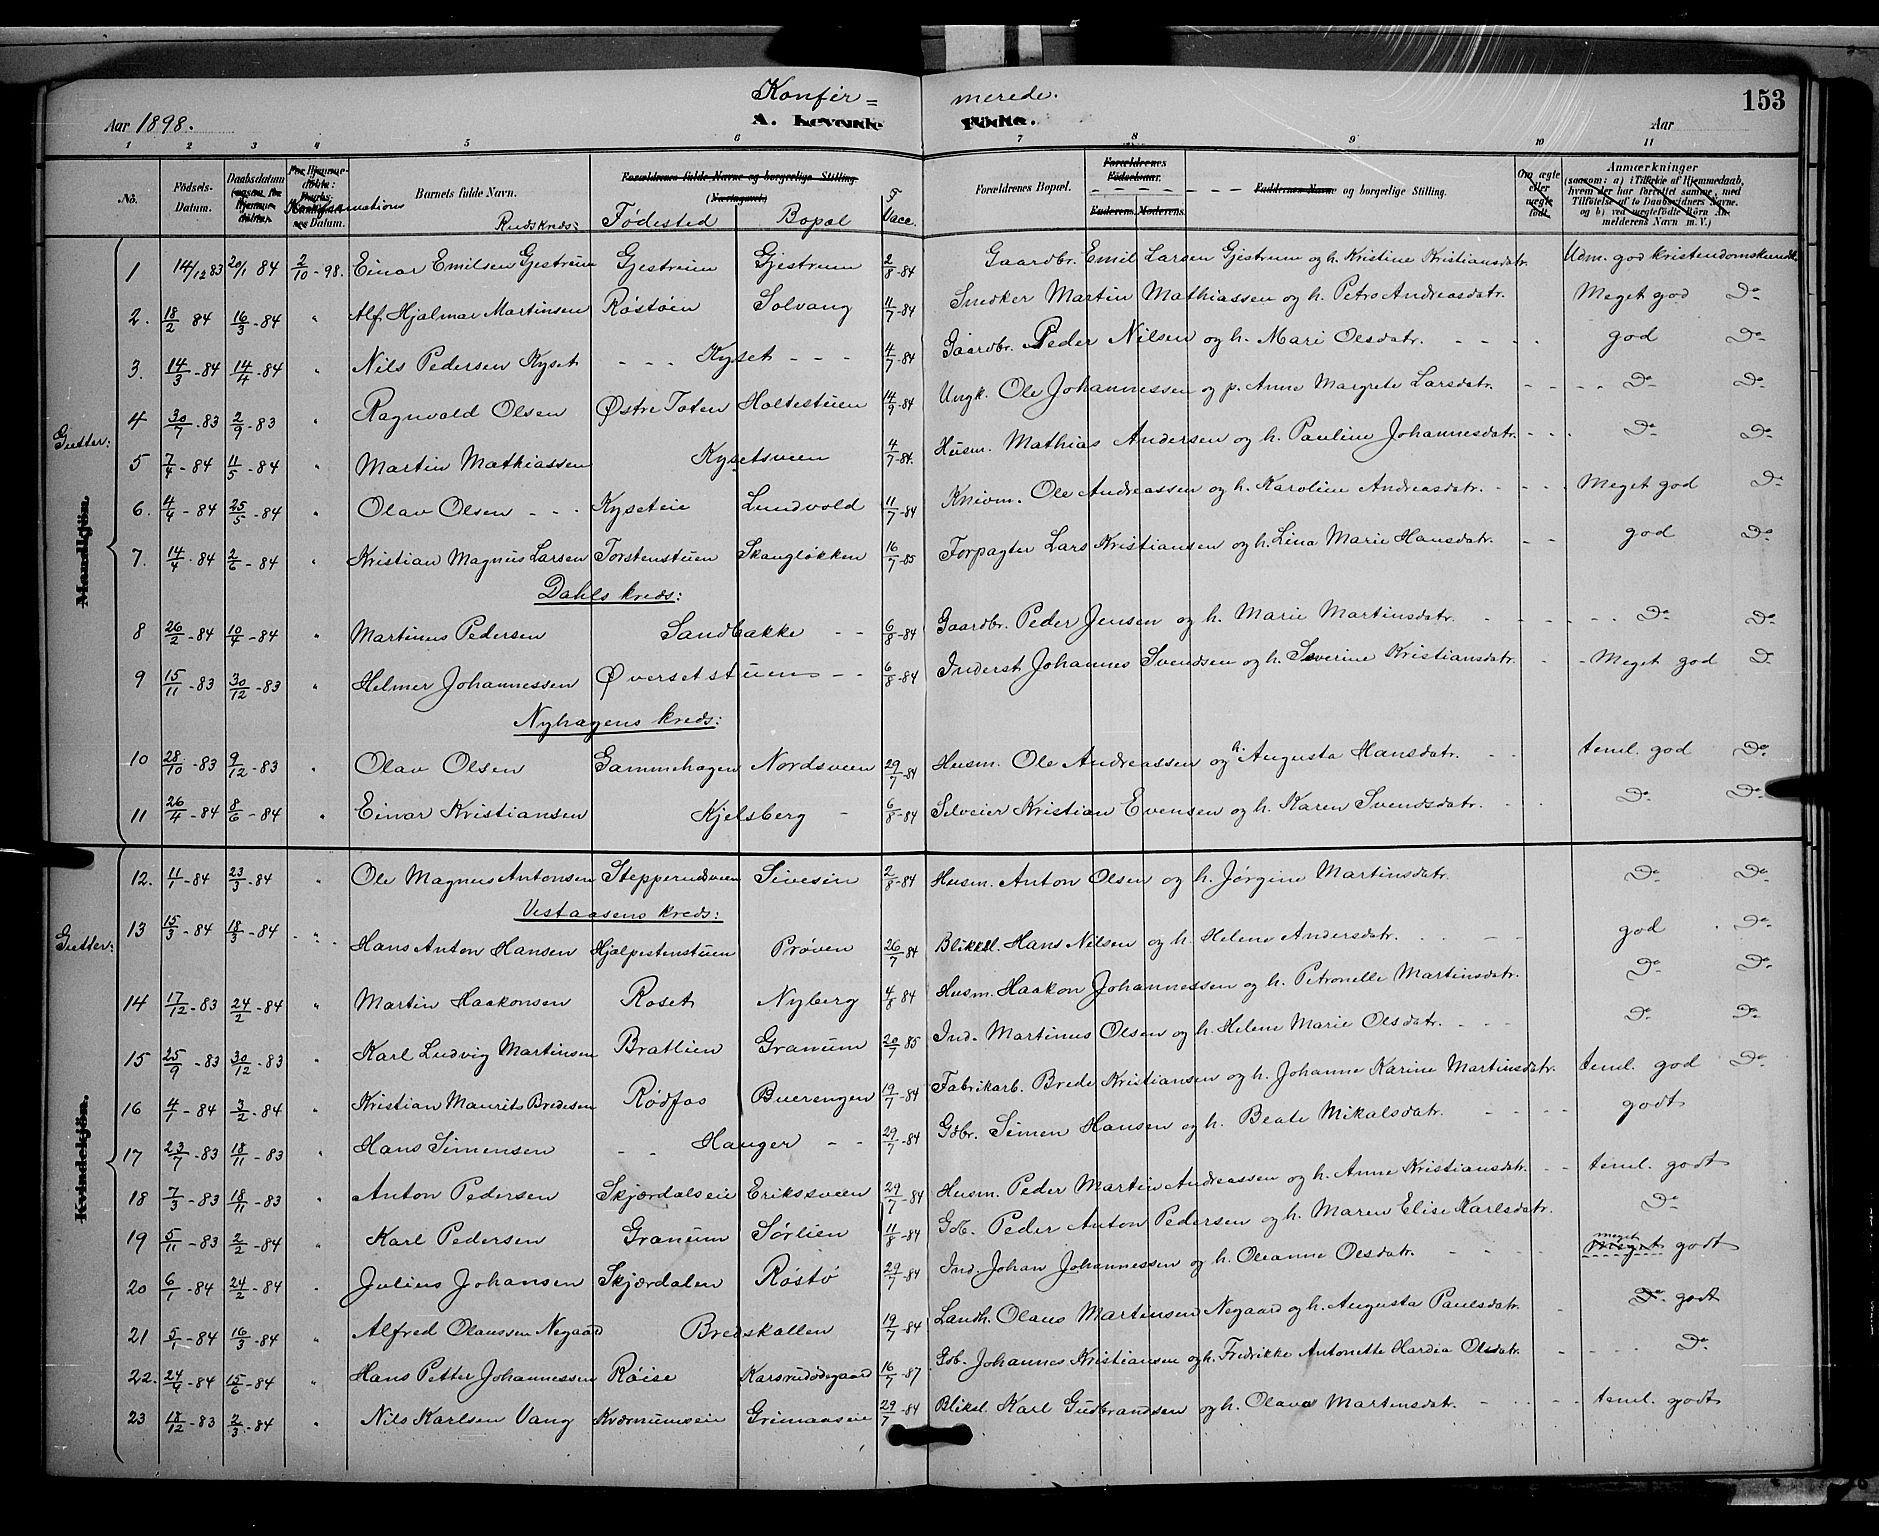 Konfir = merede.
153
Aar 1898. A. Levende Födte. Aar
1 2 3 4 5 6 7 8 9 10 11
No. Födsels-Datum. Daabsdatum Konfirmations Datum. Barnets fulde Navn. Forældrenes fulde Navne og borgerlige Stilling. (Næringsvei) Forældrenes Bopæl. Forældrenes Födselsaar. Faderens. Moderens. Faderens Navn og borgerlig Stilling. Om ægte eller uægte födt. Anmærkninger
(saasom: a) i Tilfælde af Hjemmedaab, hvem der har forrettet samme, med Tilföielse af to Daabsvidners Navne. og b) ved uægtefödte Börn Anmelderens Navn m. V.)
Rudskreds: Fødested Bopæl Vacc.
Gutter:
Mandkjön.
1 14/12 83 20/1 84 2/10-98. Einar Emilsen Gjestrum Gjestrum Gjestrum 2/8-84 Gaardbr. Emil Larsen Gjestrum og h. Kristine Kristiansdatr. Udm. god kristendomskundk.
2. 18/2 84 16/3-84 " Alf Hjalmar Martinsen Røstøen Solvang 11/7-84 Snedker Martin Mathiassen og h. Petro Andreasdatr. Meget god Do
3. 14/3-84 14/4-84 " Nils Pedersen Kyset - - - Kyset - - - 4/7-84 Gaardbr. Peder Nilsen og h. Mari Olsdatr. - - - - god Do
4 30/7-83 2/9-83 " Ragnvald Olsen Østre Toten Holtestuen 14/9-84 Ungk. Ole Johannessen og p. Anne Margrete Larsdatr. - - - - Do Do
5 7/4-84 11/5-84 " Martin Mathiassen Kysetsveen 4/7-84. Husm. Mathias Andersen og h. Pauline Johannesdatr. - - - Do Do
6. 4/4-84 25/5-84 " Olav Olsen - - - Kyseteie Lundvold 11/7-84 Knivm. Ole Andreassen og h. Karoline Andreasdatr. - - - - Meget god Do
7. 14/4-84 2/6-84 " Kristian Magnus Larsen Torstenstuen Skaugløkken 16/7-85 Forpagter Lars Kristiansen og h. Lina Marie Hansdatr. - - god Do
Dahls kreds:
8 26/2-84 10/4-84 " Martinus Pedersen Sandbakke - - 6/8-84 Gaardbr. Peder Jensen og h. Marie Martinsdatr. - - - - - Do Do
9 15/11-83 30/12-83 " Helmer Johannessen Øversetstuen - - 6/8-84 Inderst Johannes Svendsen og h. Severine Kristiansdatr. - - Meget god Do
Nyhagens kreds:
10 28/10-83 9/12-83 " Olav Olsen Gammehagen Nordsveen 29/7-84 Husm. Ole Andreassen og h. Augusta Hansdatr. - - teml. god Do
11 26/4-84 8/6-84 " Einar Kristiansen Kjelsberg - 6/8-84 Selveier Kristian Evensen og h. Karen Svendsdatr. - - Do Do
Gutter:
Kvindekjön.
12. 11/1-84 23/3-84 " Ole Magnus Antonsen Stepperudsveen Sivesin 2/8-84 Husm. Anton Olsen og h. Jørgine Martinsdatr. Do Do
Vestaasens kreds:
13 15/3-84 18/3-84 - " - Hans Anton Hansen Hjalpestenstuen Prøven 26/7-84 Blikksl. Hans Nilsen og h. Helene Andersdatr. - - - - god Do
14 17/12-83 24/2-84 " Martin Haakonsen Roset Nyberg 4/8-84 Husm. Haakon Johannessen og h. Petronelle Martinsdatr. Do Do
15 25/9-83 30/12-83 " Karl Ludvig Martinsen Bratlien Granum 20/7-85 Ind. Martinus Olsen og h. Helene Marie Olsdatr. - - - Do Do
16 4/1-84 3/2-84 " Kristian Maurits Bredesen Rødfos Buerengen 19/7-84 Fabrikarb. Brede Kristiansen og h. Johanne Karine Martinsdatr. teml. god Do
17 23/7-83 18/11-83 " Hans Simensen - - Hauger - - 29/7-84 Gdbr. Simen Hansen og h. Beate Mikalsdatr. - - - - godt
18 7/3-83 18/11-83 " Anton Pedersen Skjærdalseie Erikssveen 29/7-84 Husm. Peder Martin Andreassen og h. Anne Kristiansdatr. - - teml. godt
19 5/11-83 2/2-84 " Karl Pedersen Granum Sørlien 11/8-84 Gdb. Peder Anton Pedersen og h. Maren Elise Karlsdatr. Do
20 6/1-84 24/2-84 " Julius Johansen Skjærdalen Røstø 29/7-84 Ind. Johan Johannessen og h. Oleanne Olsdatr. - - - - meget godt
21 5/1-84 16/3-84 " Alfred Olaussen Negaard Bredskallen 19/7-84 Landh. Olaus Martinsen Negaard og h. Augusta Paulsdatr. - Do godt
22. 24/4-84 15/6-84 " Hans Petter Johannessen Røise Karsrudødegaard 16/7-87 Gdb. Johannes Kristiansen og h. Fredrikke Antonette Hardia Olsdatr. - - - - Do
23 18/12-83 2/3-84 " Nils Karlsen Vang Kværnumseie Grimaaseie 29/7-84 Bliksl. Karl Gudbrandsen og h. Olava Martinsdatr. - - - teml. godt